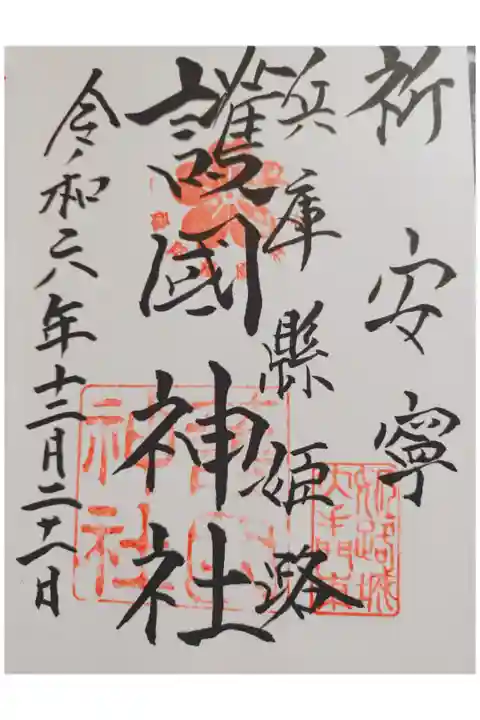 祈安寧
兵庫縣姫路
護國神社
令和六年十二月二十一日
姫路城
護國
神社